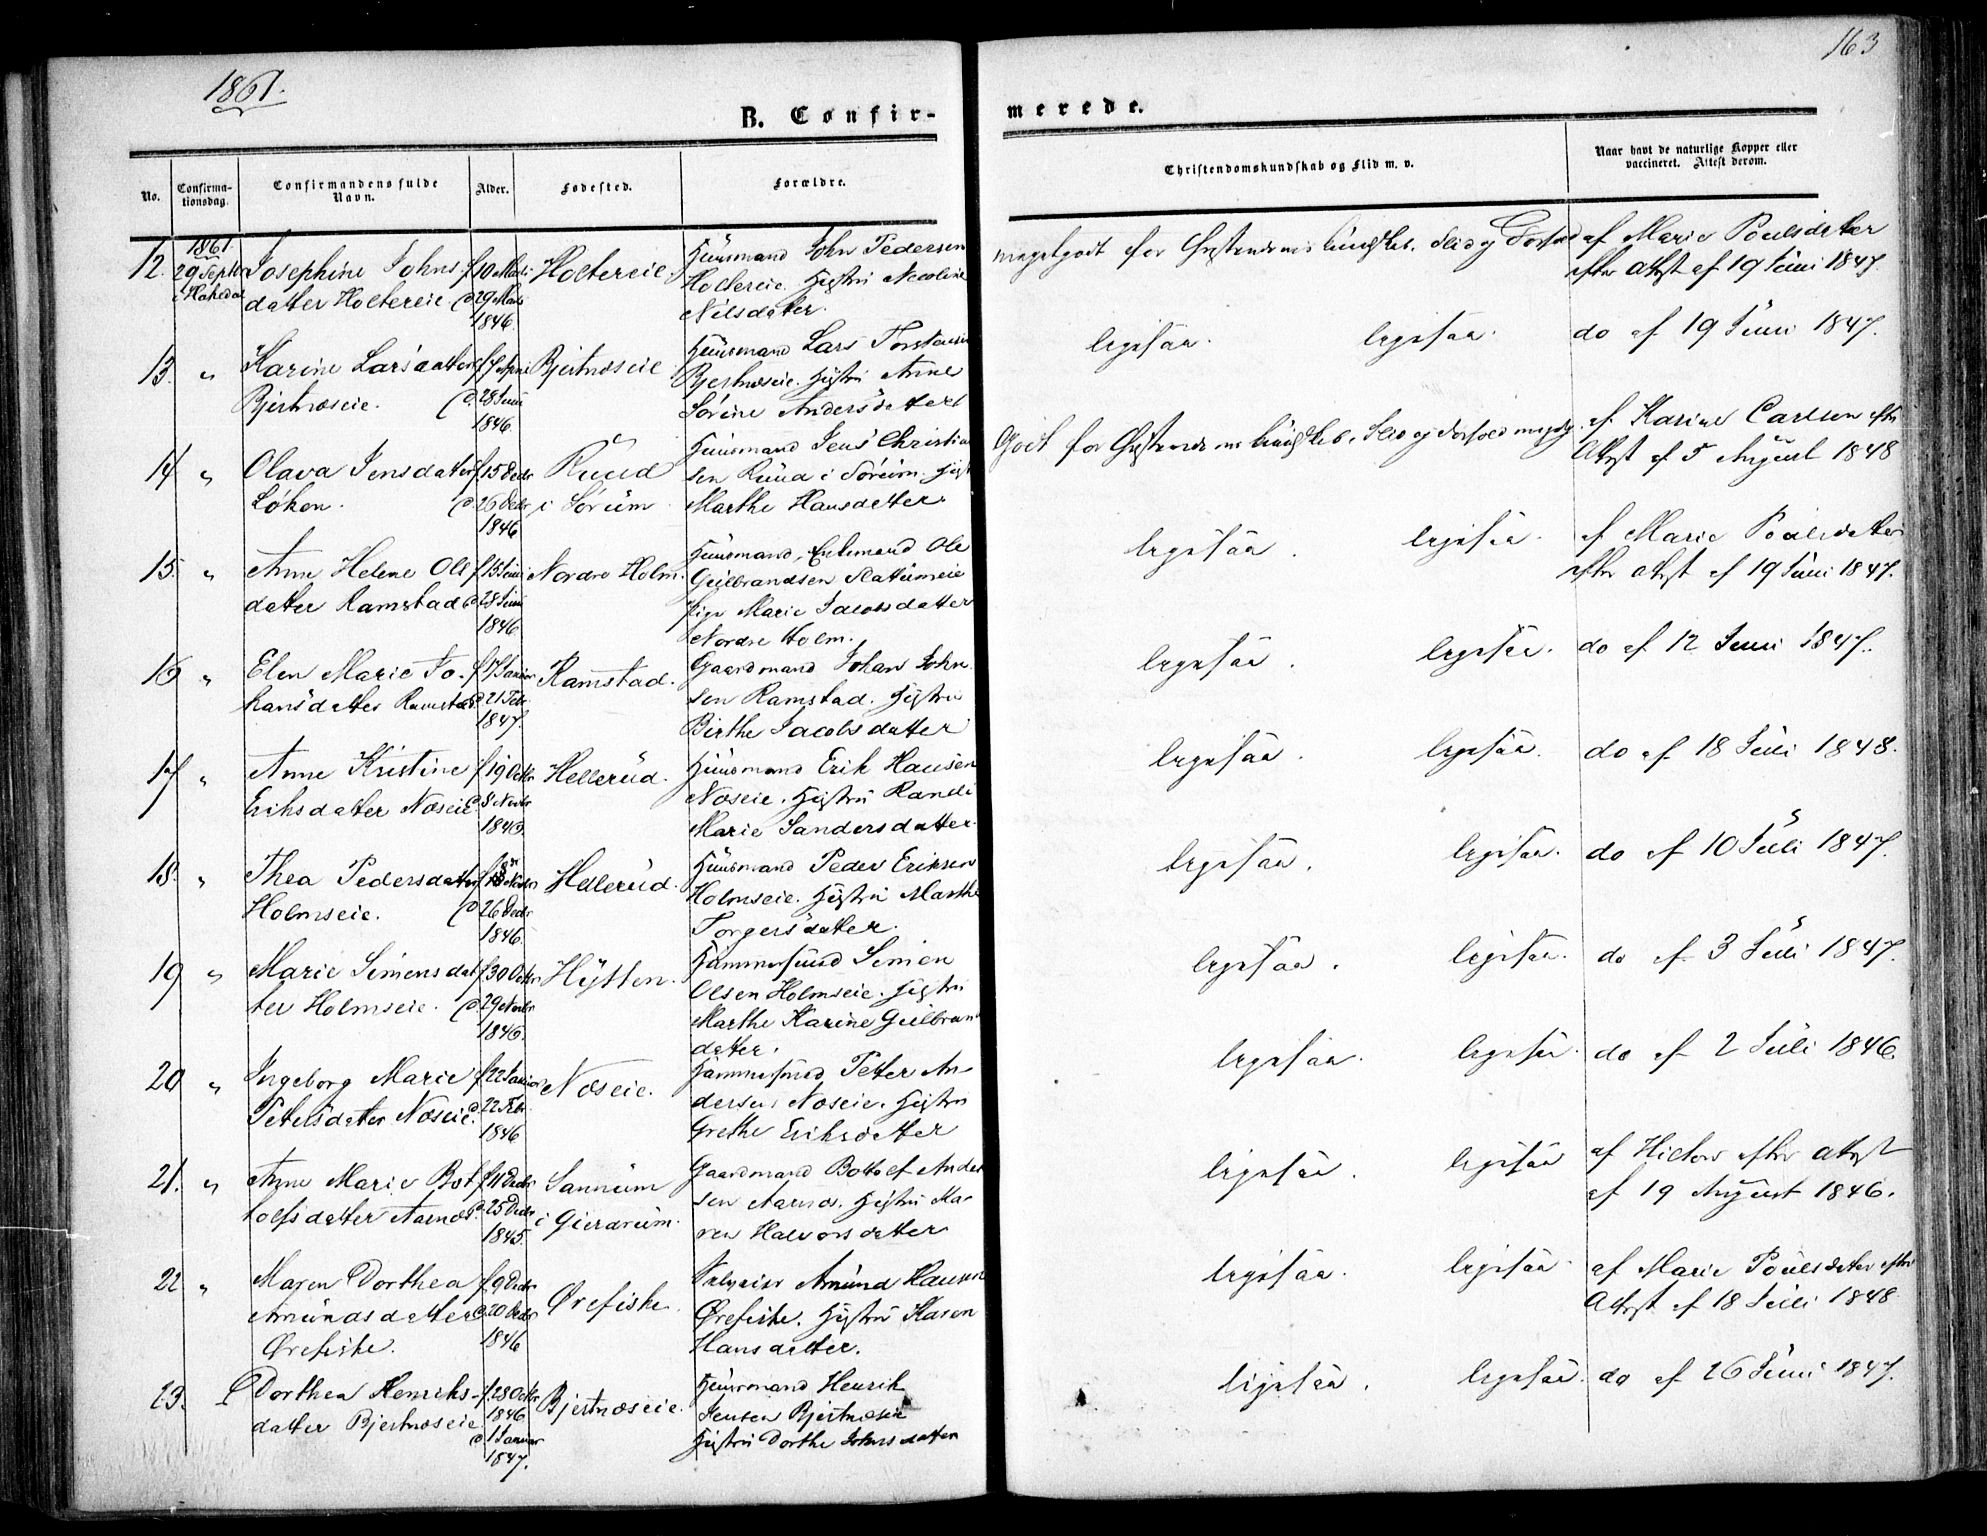 1861.
163
B. Confir-
merede.
No.
Confirma-
tionsdag.
Confirmandens fulde
Navn.
Alder.
Fødested.
Forældre.
Christendomskundskab og Flid m. v.
Naar havt de naturlige Kopper eller
vaccineret. Attest derom.
12. 1861 Josephine Johns f 10 Marti Holtereie. Huusmand John Pedersen
29 Septbr datter Holtereie. d 29 Marts Holtereie. Hustru Nicoline
i Hakedal 1846. Nilsdatter.
meget godt for Christendomskundskab. Flid og Forhold
af Marie Poulsdatter
efter Attest af 19 Juni 1847.
13. " Karine Larsdatter f 17 April Bjertnæseie Huusmand Lars Torstensen
Bjertnæseie. d. 28 Juni Bjertnæseie. Hustru Anne
1846. Sørine Andersdatter
ligesaa. ligesaa. do af 19 Juni 1847.
14 " Olava Jensdatter f 15 Decbr Ruud Huusmand Jens Christian
Løken. d. 26 Decbr i Sørum. sen Ruud i Sørum. Hust
1846 Marthe Hansdatter.
Godt for Christendomskundskab. Flid og Forhold meget g.
af Karine Carlsen efter
Attest af 5 August 1848
15. " Anne Helene Ols f 15 Juni Nordre Holm. Huusmand, Enkemand Ole
datter Ramstad d 28 Juni Gulbrandsen
1846 Pige Marie Jacobsdatter
Nordre Holm.
ligesaa. ligesaa. af Marie Poulsdatter
efter Attest af 19 Juni 1847.
16 " Elen Marie Jo- f 17 Januar Ramstad. Gaardmand Johan John
hansdatter Ramstad. d 21 Febr. sen Ramstad. Hustru
1847. Birthe Jacobsdatter
ligesaa. ligesaa. do af 12 Juni 1847.
17 " Anne Kristine f 19 Octbr Hellerud. Huusmand Erik Hansen
Eriksdatter Næseie d 8 Novbr Næseie. Hustru Randi
1846. Marie Sandersdatter.
ligesaa. ligesaa. do af 18 Juli 1848.
18. " Thea Pedersdatter Hellerud. Huusmand Peder Eriksen
Holmseie. d 26 Decbr Holmseie. Hustru Marthe
1846. Torgersdatter.
ligesaa. ligesaa. do af 10 Juli 1847.
19 " Marie Simensdat f 30 Octbr Hytten. Simen
ter Holmseie. d. 29 Novbr Olsen Holmseie. Hustru
1846. Marthe Karine Gulbran
datter.
ligesaa. ligesaa. do af 3 Juli 1847.
20 " Ingeborg Marie f 22 Januar Næseie. Petter An-
Petersdatter Næseie. d 22 Febr. dersen Næseie. Hustru
1846 Grethe Eriksdatter
ligesaa. ligesaa. do af 2 Juli 1846.
21. " Anne Marie Bot f 11 Decbr Sannum Gaardmand Botolf Ander
tolfsdatter Aarnæs. d 25 Decbr i Gierdrum. sen Aarnæs. Hustru Ka-
1845. ren Halvorsdatter
ligesaa. ligesaa af efter Attest
af 19 August 1846.
22 " Maren Dorthea f 9 Decbr Ørefiske. Selveier Amund Hansen
Amundsdatter d 20 Decbr Ørefiske. Hustru Karen
Ørefiske. 1846 Hansdatter.
ligesaa. ligesaa. af Marie Poulsdatter efter
Attest af 18 Juli 1848
23. Dorthea Henriks- f. 28 Octbr Bjertnæseie. Huusmand Henrik
datter Bjertnæseie 1846 Jensen Bjertnæseie
d 1 Januar Hustru Dorthe Johnsdatter
1847.
ligesaa. ligesaa. do af 26 Juni 1847.